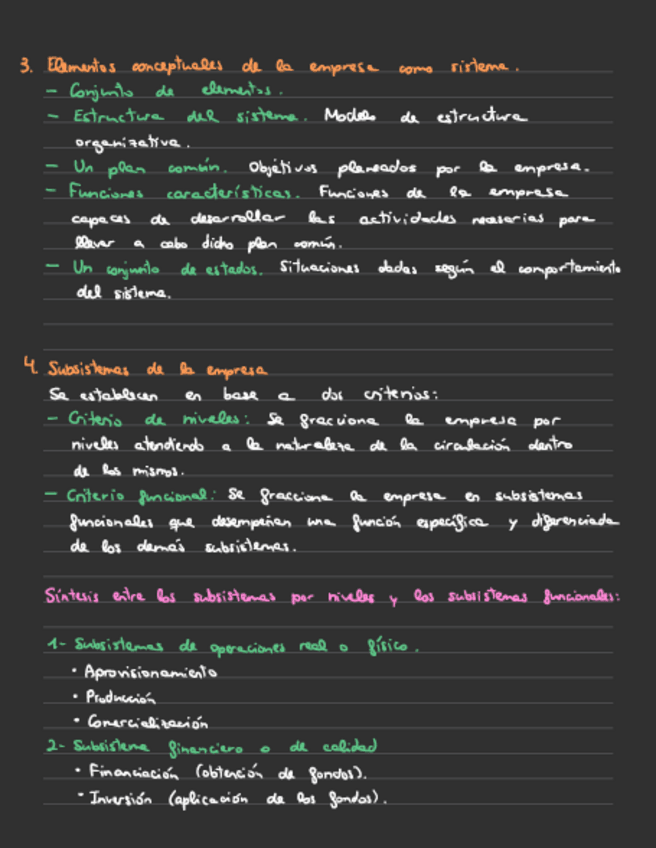 3. Elementos conceptuales de la empresa como sistema.
- Conjunto de elementos.
- Estructura del sistema. Modelo de estructura
organizativa.
- Un plan común. Objetivos planeados por la empresa.
- Funciones características. Funciones de la empresa
capaces de desarrollar las actividades necesarias para
llevar a cabo dicho plan común.
- Un conjunto de estados. Situaciones dadas según el comportamiento
del sistema.
4. Subsistemas de la empresa
Se establecen en base a dos criterios:
- Criterio de niveles: Se fracciona la empresa por
niveles atendiendo a la naturaleza de la circulación dentro
de los mismos.
- Criterio funcional: Se fracciona la empresa en subsistemas
funcionales que desempeñan una función específica y diferenciada
de los demás subsistemas.
Síntesis entre los subsistemas por niveles y los subsistemas funcionales:
1- Subsistemas de operaciones real o físico.
· Aprovisionamiento
· Producción
· Comercialización
2- Subsistema financiero o de calidad
· Financiación (obtención de fondos).
· Inversión (aplicación de los fondos).